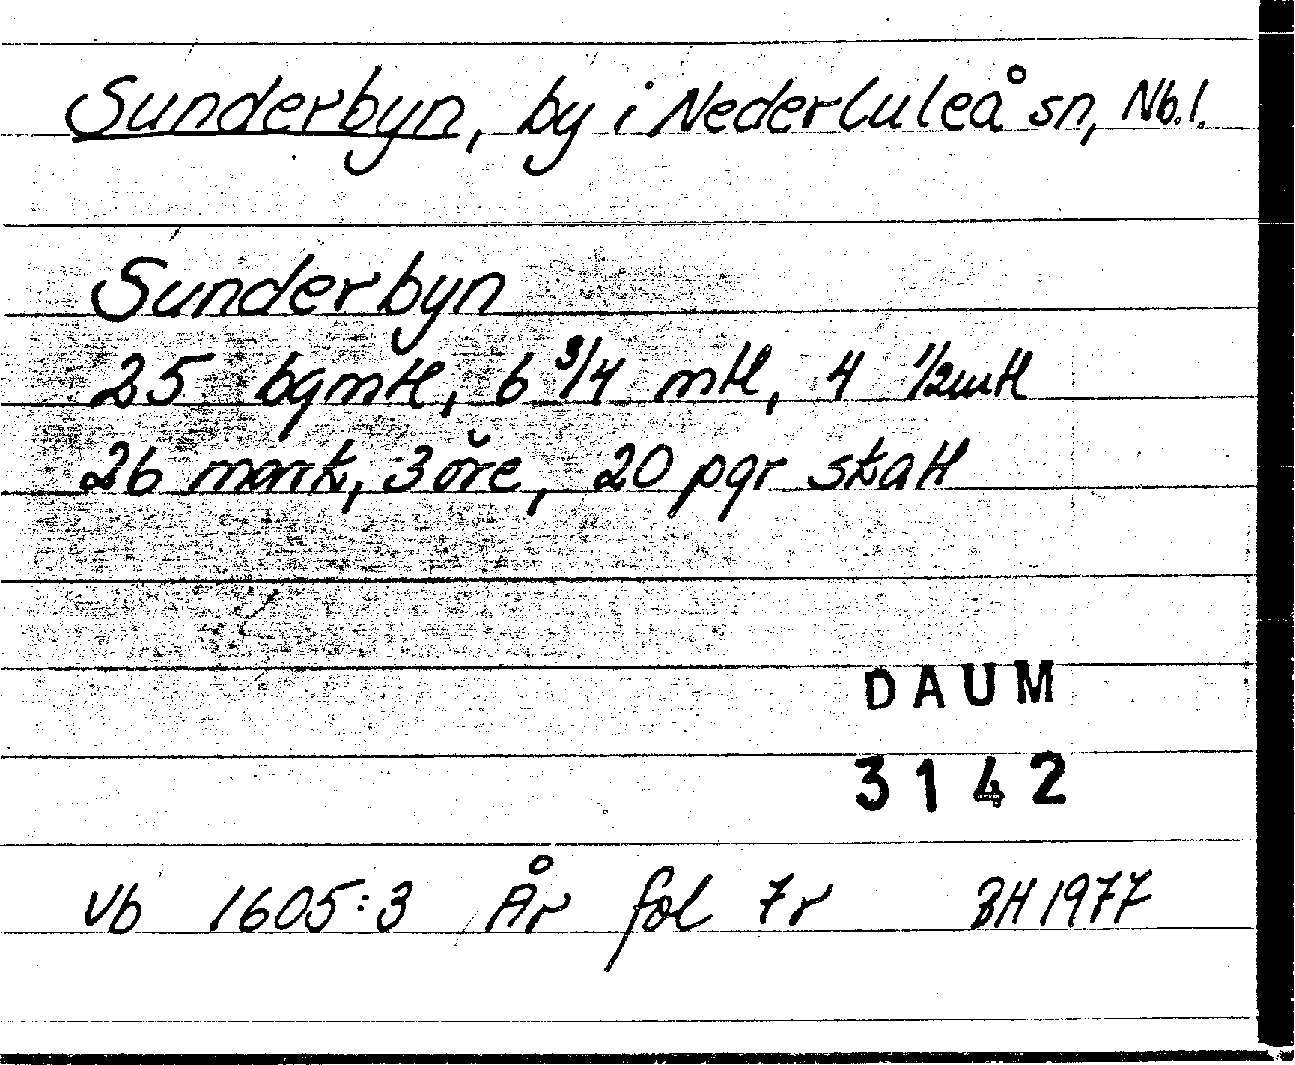 Sunderbyn, by i Nederluleå sn, Nb.l.
Sunderbyn
25 bgmtl, 6 3/4 mtl, 4 1/2mtl
26 mark, 3 öre, 20 pgr skatt
DAUM
3142
Vb 1605:3 År fol 7r BH 1977